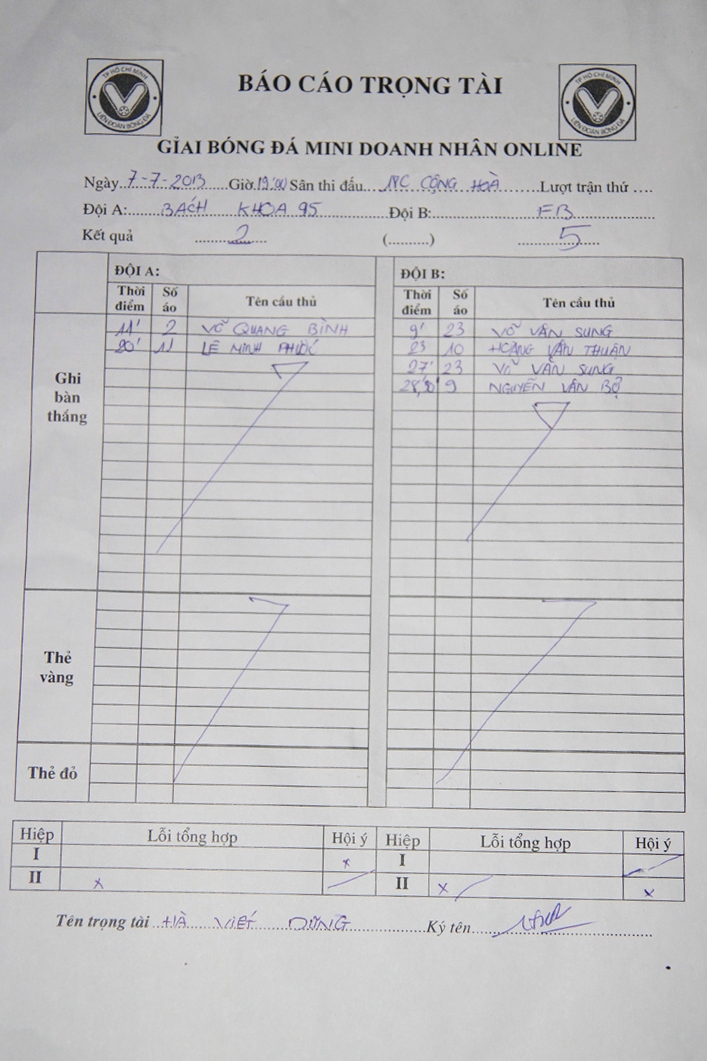 TP HỒ CHÍ MINH
LIÊN ĐOÀN BÓNG ĐÁ
BÁO CÁO TRỌNG TÀI
TP HỒ CHÍ MINH
LIÊN ĐOÀN BÓNG ĐÁ
GIẢI BÓNG ĐÁ MINI DOANH NHÂN ONLINE
Ngày 7-7-2013 Giờ 19:00 Sân thi đấu CỘNG HOÀ Lượt trận thứ ....
Đội A: BÁCH KHOA 95 Đội B: FB
Kết quả 2 (..........) 5
ĐỘI A: ĐỘI B:
Thời điểm Số áo Tên cầu thủ Thời điểm Số áo Tên cầu thủ
Ghi bàn thắng
11' 2 VÕ QUANG BÌNH 9' 23 VÕ VĂN SUNG
20' 11 LÊ MINH PHƯỚC 23 10 HOÀNG VĂN THUẬN
27' 23 VÕ VĂN SUNG
9 NGUYỄN VĂN BỘ
Thẻ vàng
Thẻ đỏ
Hiệp Lỗi tổng hợp Hội ý Hiệp Lỗi tổng hợp Hội ý
I x I
II x II x x
Tên trọng tài HÀ VIẾT DŨNG Ký tên